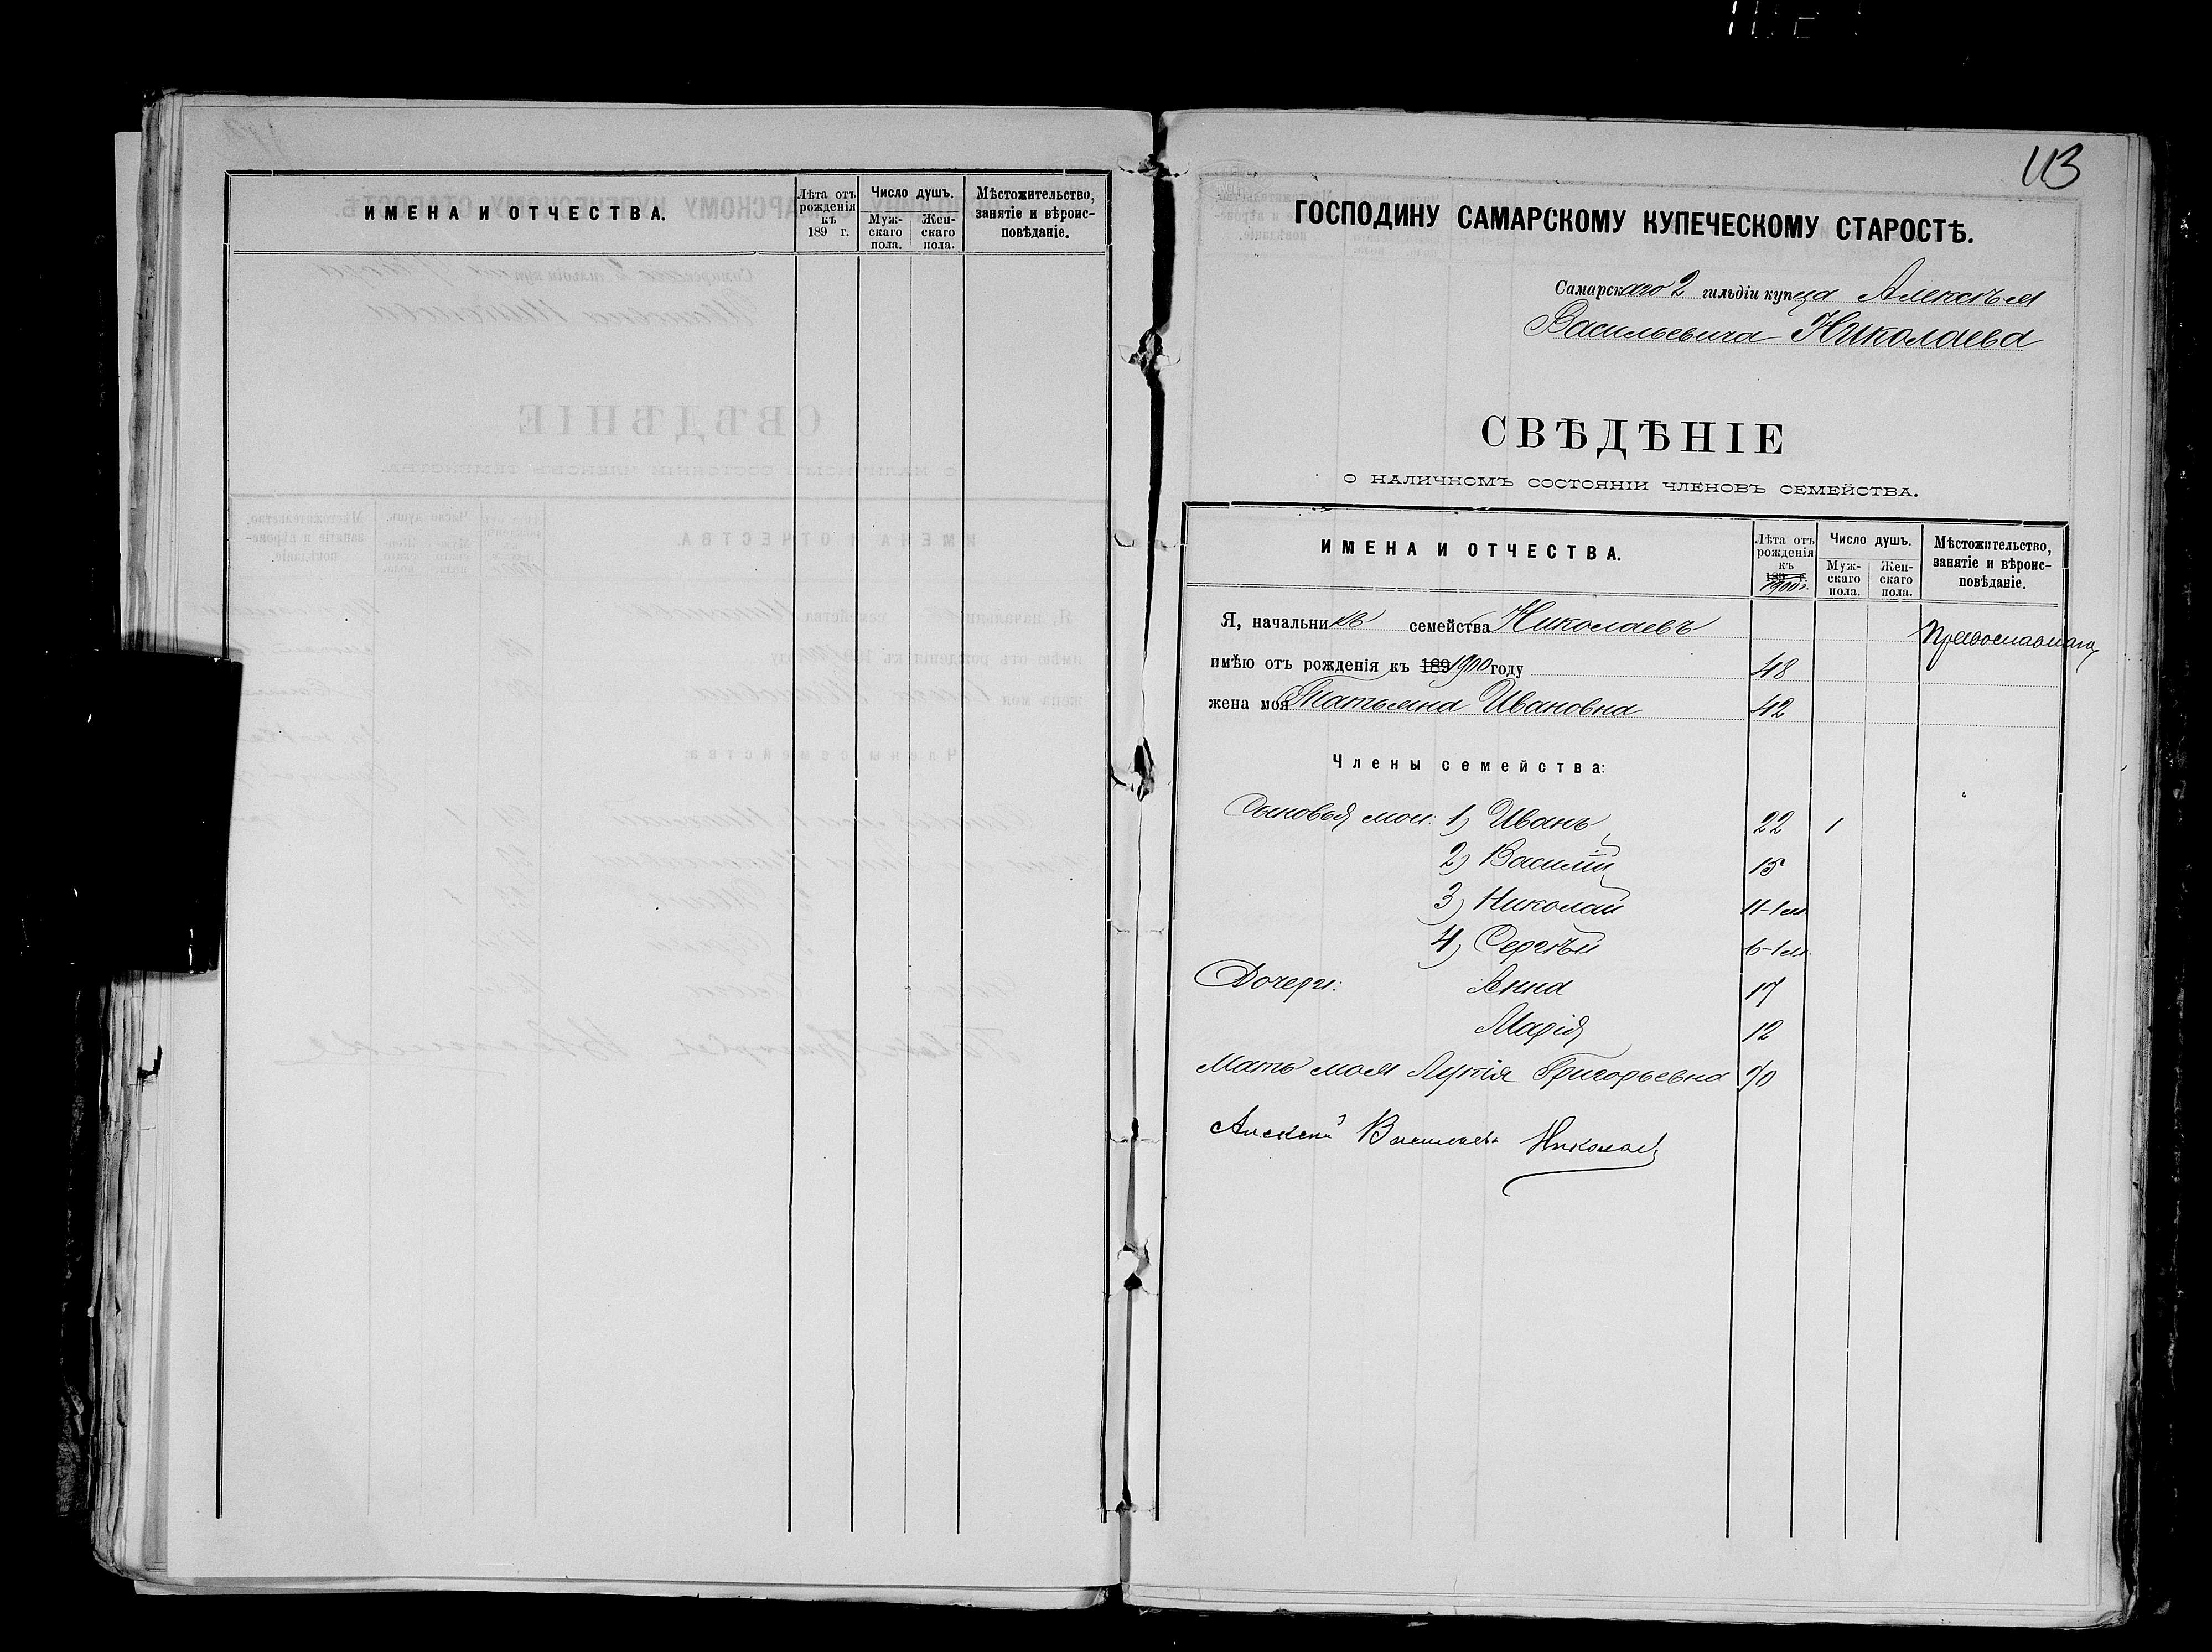 ИМЕНА И ОТЧЕСТВА.
Лѣта отъ рожденія къ 189 г.
Число душъ.
Мужскаго пола.
Женскаго пола.
Мѣстожительство, занятіе и вѣроисповѣданіе.
113
ГОСПОДИНУ САМАРСКОМУ КУПЕЧЕСКОМУ СТАРОСТѢ.
Самарскаго 2 гильдіи купца Алексѣя
Васильевича Николаева
СВѢДѢНІЕ
О НАЛИЧНОМЪ СОСТОЯНІИ ЧЛЕНОВЪ СЕМЕЙСТВА.
ИМЕНА И ОТЧЕСТВА.
Лѣта отъ рожденія къ 189 г. 1900 г.
Число душъ.
Мужскаго пола.
Женскаго пола.
Мѣстожительство, занятіе и вѣроисповѣданіе.
Я, начальникъ семейства Николаевъ
имѣю отъ рожденія къ 189 1900 году 48
жена моя Татьяна Ивановна 42
Члены семейства:
Сыновья мои: 1) Иванъ 22 1
2) Василій 15
3) Николай 11-1 м.
4) Сергѣй 6-1 м.
Дочери: Анна 17
Марія 12
Мать моя Григорьевна 70
Алексей Васильевъ Николаевъ